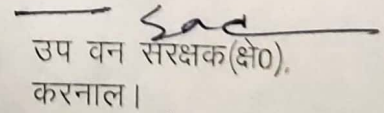 उप वन संरक्षक(क्षे0),
करनाल।